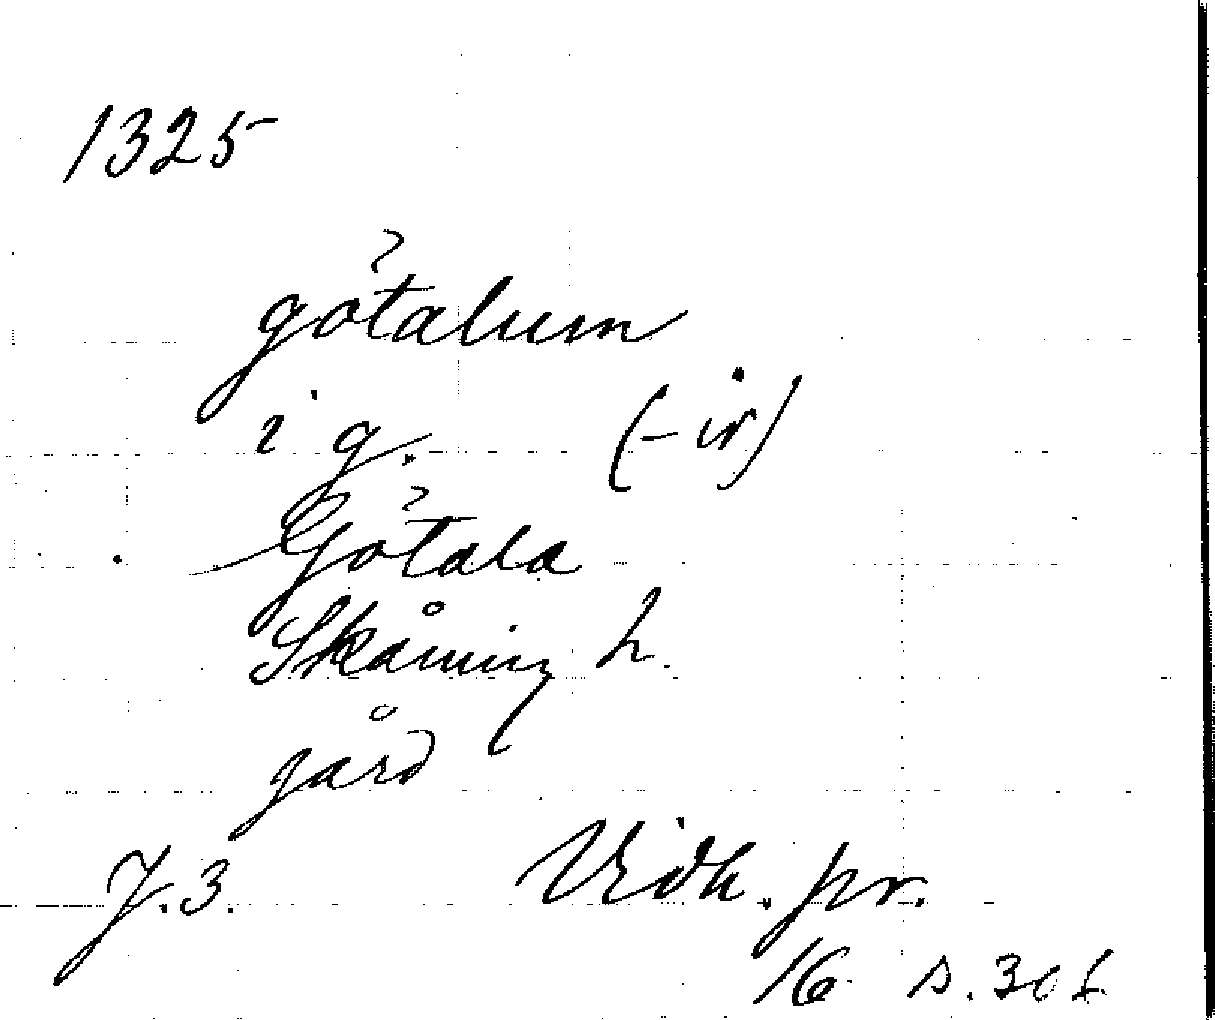 1325
götalum
i g. (-ir)
Götala
Skåning h.
gård
J. 3. Vidh. pr.
16 s. 30 f.